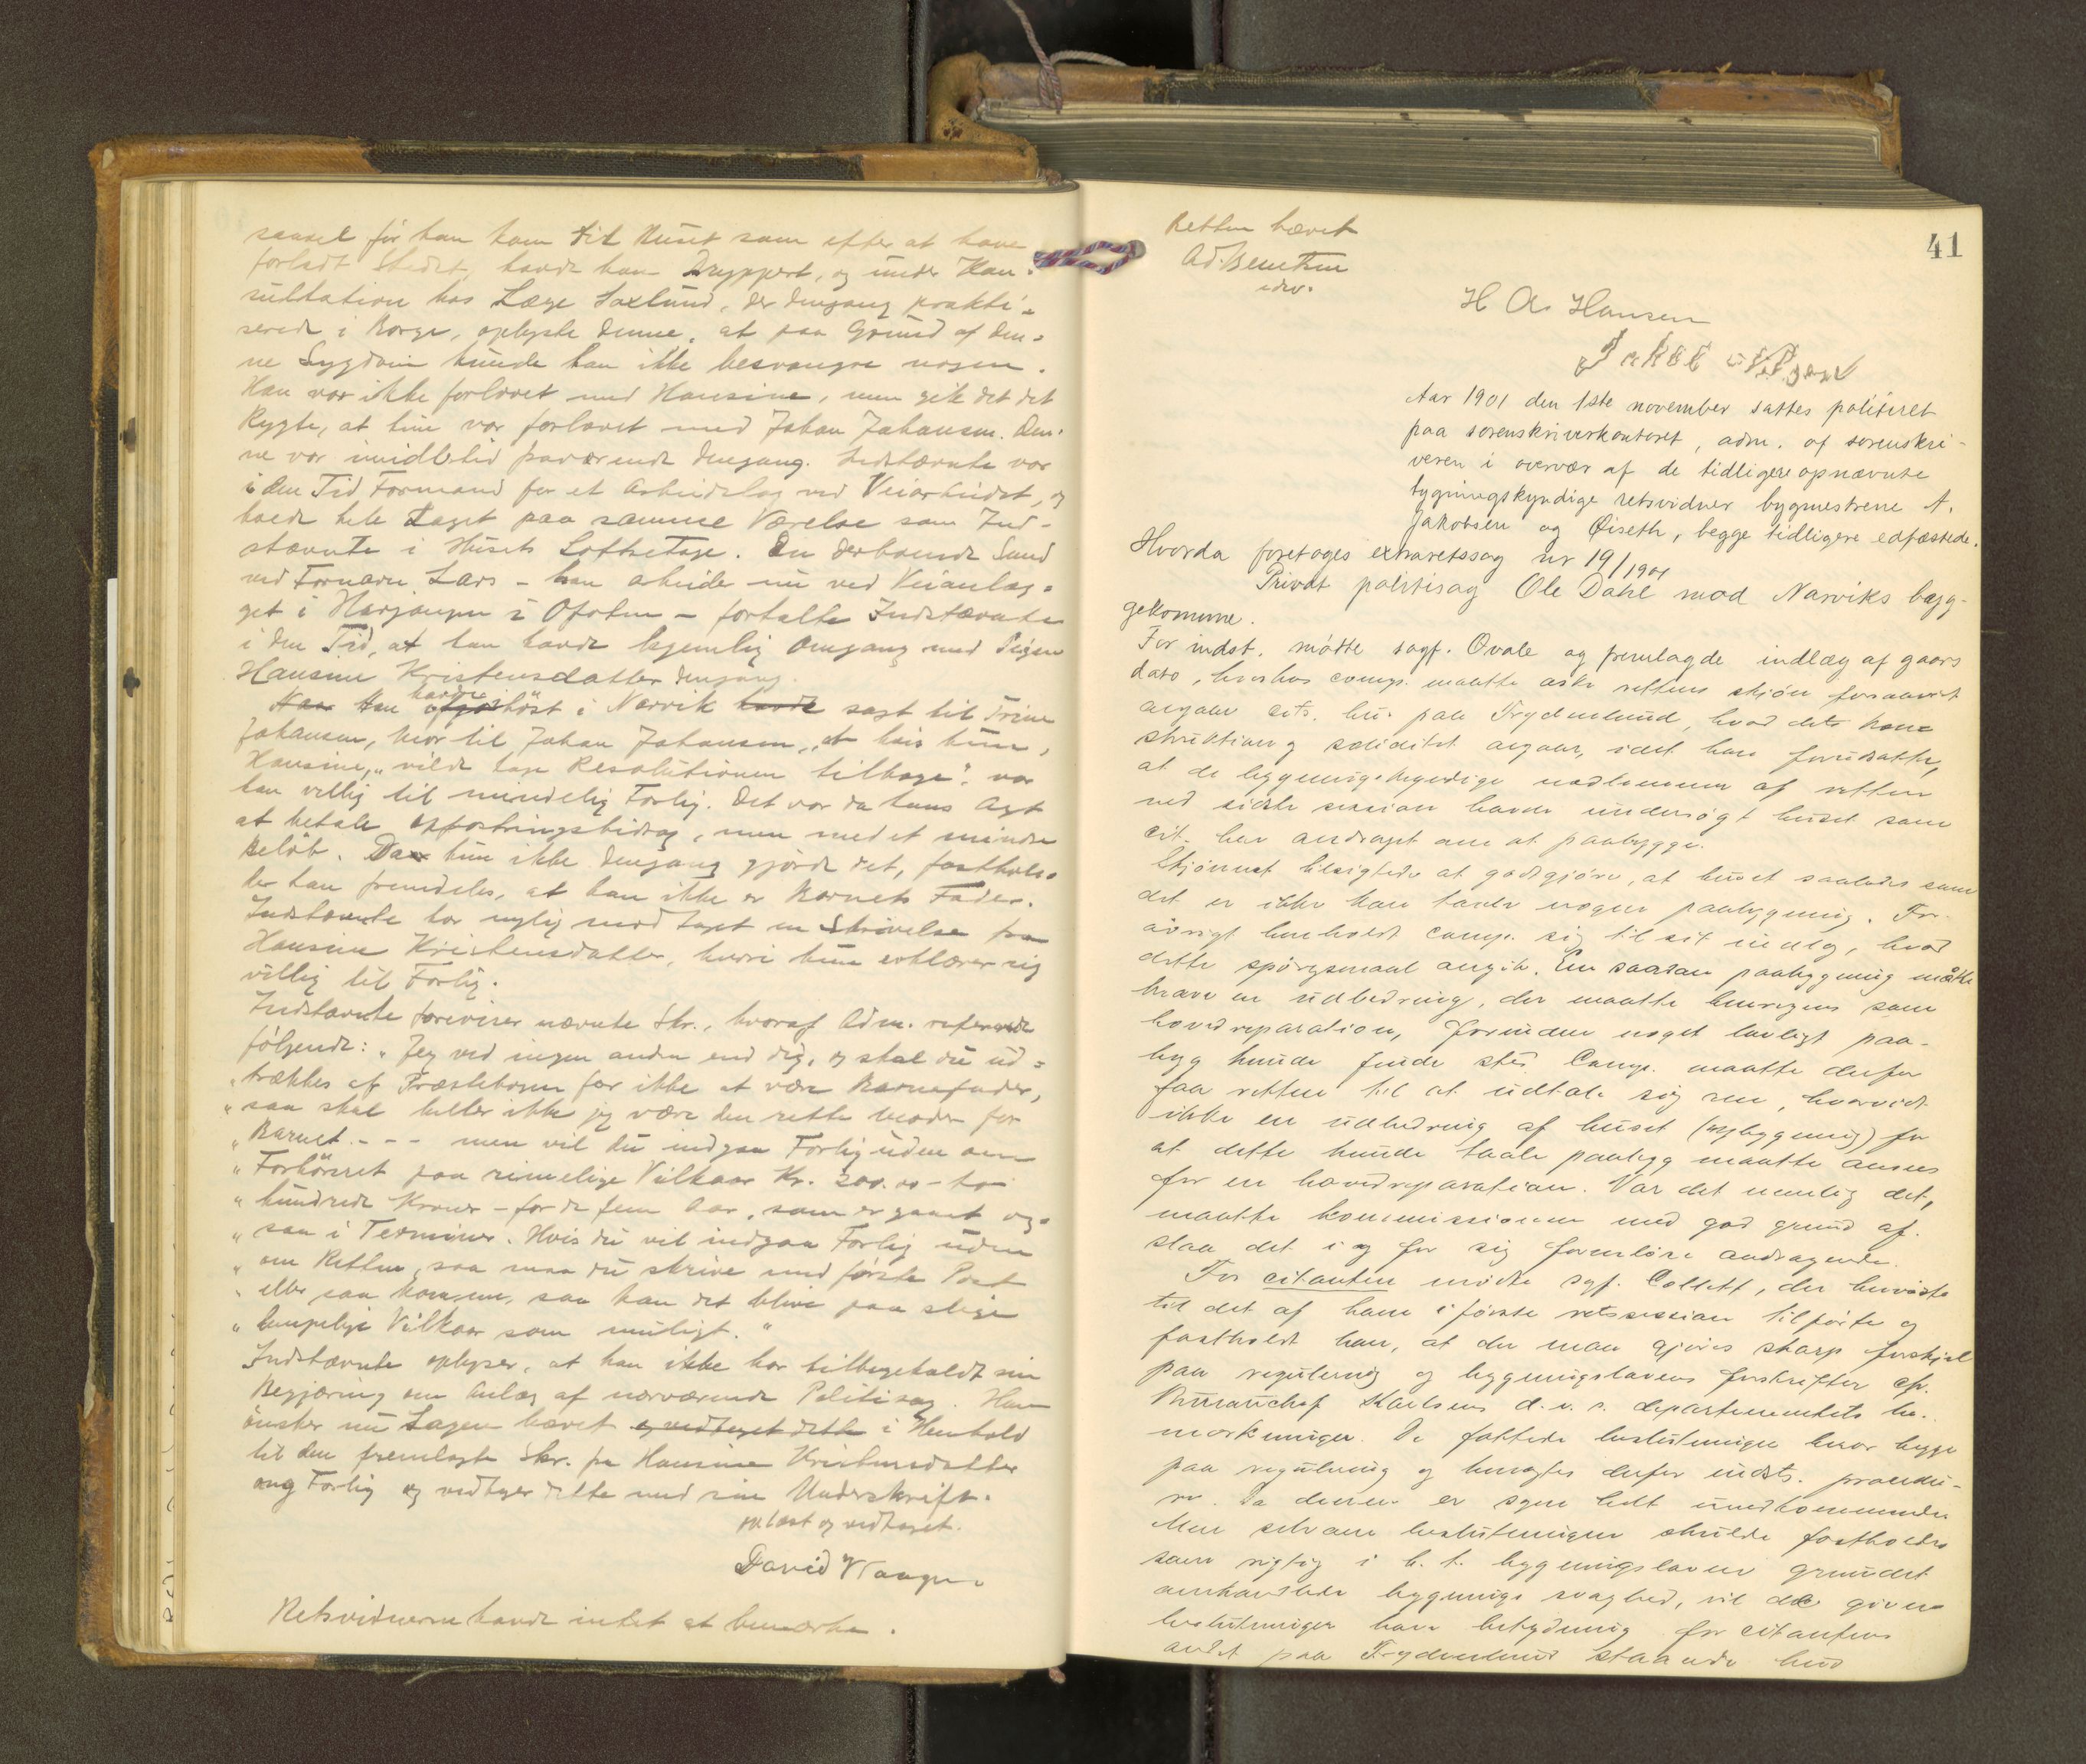 saavel før han kom til Huset som efter at have
forladt Stedet, havde han Dryppert, og under Kon-
sultation hos Læge Saxlund, der dengang prakti-
serede i Borge, oplyste denne, at paa Grund af den-
ne Sygdom kunde han ikke besvangre nogen.
Han var ikke forlovet med Hansine, men gik det det
Rygte, at hun var forlovet med Johan Johansen. Den-
ne var imidlertid fraværende dengang. Indstævnte var
i den Tid Formand for et Arbeidslag ved Veiarbeidet, og
boede hele Laget paa samme Værelse som Ind-
stævnte i Husets Loftsetage. En derboende Smed
ved Fornavn Lars - han arbeide nu ved Veianlæg-
get i Herjangen i Ofoten - fortalte Indstævnte
i den Tid, at han havde legemlig Omgang med Pigen
Hansine Kristensdatter dengang.
Han havde ihøst i Narvik sagt til Trine
Johansen, Mor til Johan Johansen, at hvis hun,
Hansine, "vilde tage Resolutionen tilbage", var
han villig til mindelig Forlig. Det var da hans Agt
at betale Opfostringsbidrag, men med et mindre
Beløb. Da hun ikke dengang gjorde det, fasthol-
der han fremdeles, at han ikke er Barnets Fader.
Indstævnte har nylig modtaget en Skrivelse fra
Hansine Kristensdatter, hvori hun erklærer sig
villig til Forlig.
Indstævnte foreviser nævnte Skr., hvoraf Adm. refererede
følgende: "Jeg ved ingen anden end dig, og skal du ud-
"trækkes af Præstebogen for ikke at være Barnefader,
"saa skal heller ikke jeg være den rette Moder for
"Barnet. - - - men vil du indgaa Forlig uden om
"Forhørsret paa rimelige Vilkaar Kr. 200.00 - to
"hundrede Kroner - for de fem Aar, som er gaaet og-
"saa i Terminer. Hvis du vil indgaa Forlig uden
"om Retten, saa maa du skrive med første Post
"eller saa komme, saa kan det blive paa slige
"lempelige Vilkaar som muligt."
Indstævnte oplyser, at han ikke har tilbageholdt sin
Begjæring om Anlæg af nærværende Politisag. Han
ønsker nu Sagen hævet og vedtaget dette i Henhold
til den fremlagte Skr. fra Hansine Kristensdatter
ang Forlig og vedtager dette med sin Underskrift.
Oplæst og vedtaget.
David
Retsvidnerne havde intet at bemærke.
Retten hævet
41
H A. Hansen
Aar 1901 den 1ste november sattes politiret
paa sorenskriverkontoret, adm. af sorenskri-
veren i overvær af de tidligere opnævnte
bygningskyndige retsvidner bygmestrene A.
Jakobsen og Øiseth, begge tidligere edfæstede.
Hvorda foretoges extraretssag nr 19/1901
Privat politisag Ole Dahl mod Narviks byg-
gekomme.
For indst. mødte sagf. Qvale og fremlagde indlæg af gaars
dato, hvorhos comp. maatte æske rettens skjøn forsaavidt
angaar cits. hus paa Frydenlund, hvad dets kon-
struktion og soliditet angaar, idet han forudsatte,
at de bygningskyndige medlemmer af retten
ved sidste session havde undersøgt huset som
cit. har andraget om at paabygge.
Skjønnet tilsigtede at godtgjøre, at huset saaledes som
det er ikke kan taale nogen paabygning. For-
øvrigt henholdt comp. sig til sit indlæg, hvad
dette spørgsmaal angik. En saadan paabygning måtte
kræve en udbedring, der maatte henregnes som
hovedreparation, forinden noget lovligt paa-
byg kunde finde sted. Comp. maatte derfor
faa retten til at udtale sig om, hvorvidt
ikke en udbedring af huset (nybygning) for
at dette kunde taale paabyg maatte ansees
for en hovedreparation. Var det nemlig det,
maatte kommissionen med god grund af-
slaa det i og for sig formløse andragende.
For citanten mødte sgf. Collett, der henviste
til det af ham i første retssession tilførte og
fastholdt han, at der maa gjøres skarp forskjel
paa regulering og bygningslovens forskrifter cfr.
Bureauchef Karlsens d. v. s. departementets be-
mærkninger. De fattede beslutninger hvor bygge
paa regulering og benegtes derfor indsts. procedu-
re. Da denne er sagen helt uvedkommende
Men selv om beslutningen skulde fastholdes
som rigtig i h. t. bygningsloven grundet
omhandlede bygnings svaghed, vil de givne
beslutninger have betydning for citantens
andet paa Frydenlund staaende hus